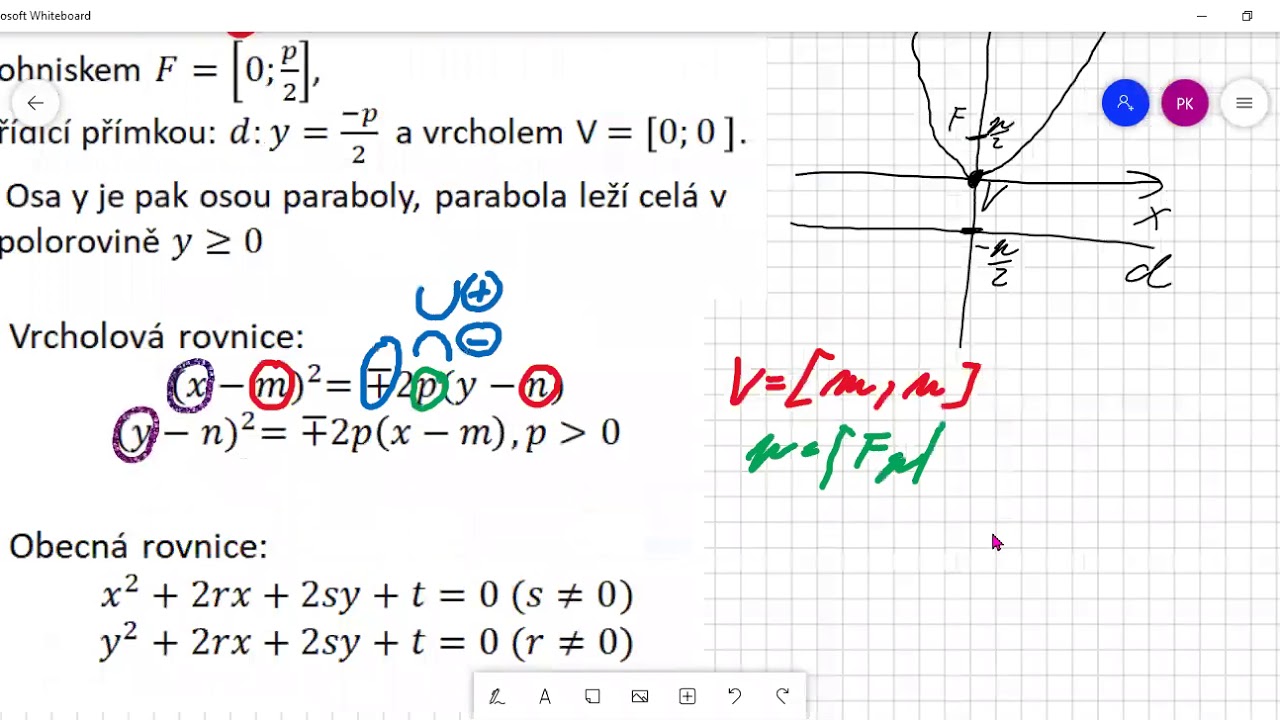 osoft Whiteboard
ohniskem F = [0; p/2],
řídicí přímkou: d: y = -p/2 a vrcholem V = [0; 0 ].
Osa y je pak osou paraboly, parabola leží celá v
polorovině y ≥ 0
Vrcholová rovnice:
(x − m)² = ∓2p(y − n)
(y − n)² = ∓2p(x − m), p > 0
Obecná rovnice:
x² + 2rx + 2sy + t = 0 (s ≠ 0)
y² + 2rx + 2sy + t = 0 (r ≠ 0)
+
−
PK
F p/2
V
x
-p/2
d
V=[m, n]